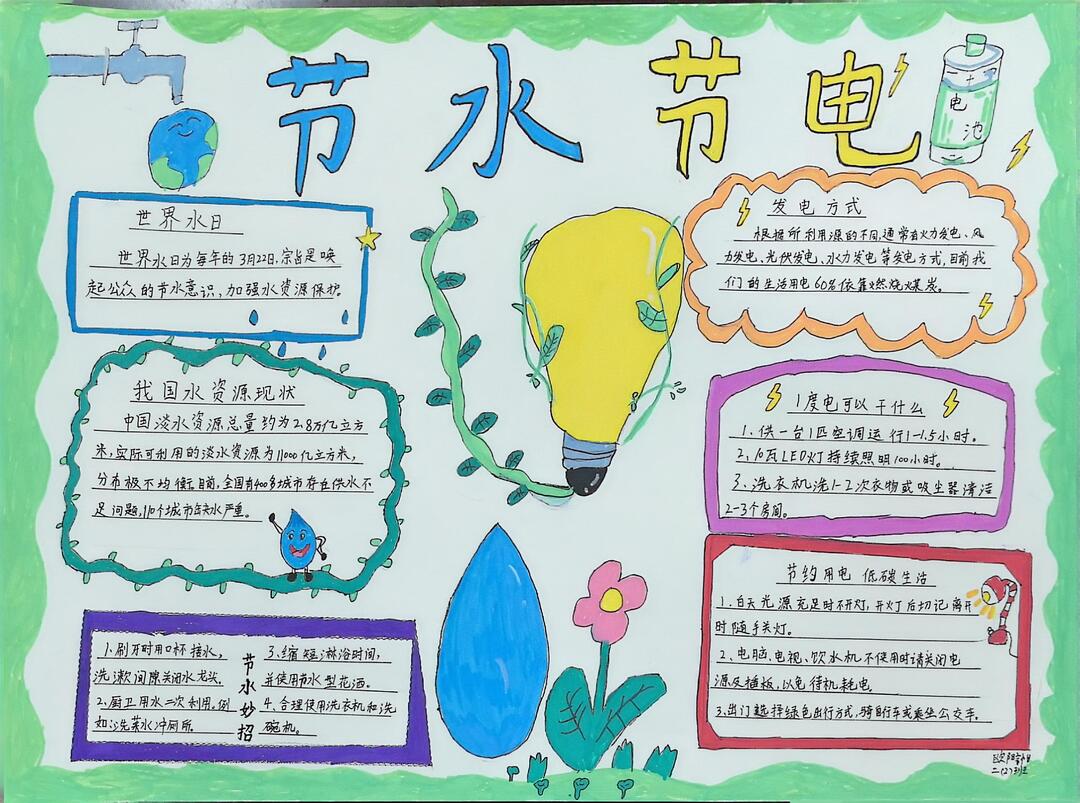 节水节电
电
池
世界水日
世界水日为每年的3月22日,宗旨是唤
起公众的节水意识,加强水资源保护。
我国水资源现状
中国淡水资源总量约为2.8万亿立方
米,实际可利用的淡水资源为11000亿立方米,
分布极不均衡,目前,全国有400多城市存在供水不
足问题,110个城市缺水严重。
节水妙招
1.刷牙时用口杯接水,
洗漱间隙关闭水龙头。
2.厨卫用水二次利用。例
如:洗菜水冲厕所。
3.缩短淋浴时间,
并使用节水型花洒。
4.合理使用洗衣机和洗
碗机。
发电方式
根据所利用源的不同,通常有火力发电、风
力发电、光伏发电、水力发电等发电方式,目前我
们的生活用电60%依靠燃烧煤炭。
1度电可以干什么
1.供一台1匹空调运行1-1.5小时。
2.10瓦LED灯持续照明100小时。
3.洗衣机洗1-2次衣物或吸尘器清洁
2-3个房间。
节约用电 低碳生活
1.白天光源充足时不开灯,开灯后切记离开
时随手关灯。
2.电脑、电视、饮水机不使用时请关闭电
源及插板,以免待机耗电。
3.出门选择绿色出行方式,骑自行车或乘坐公交车。
欧阳
二(2)班